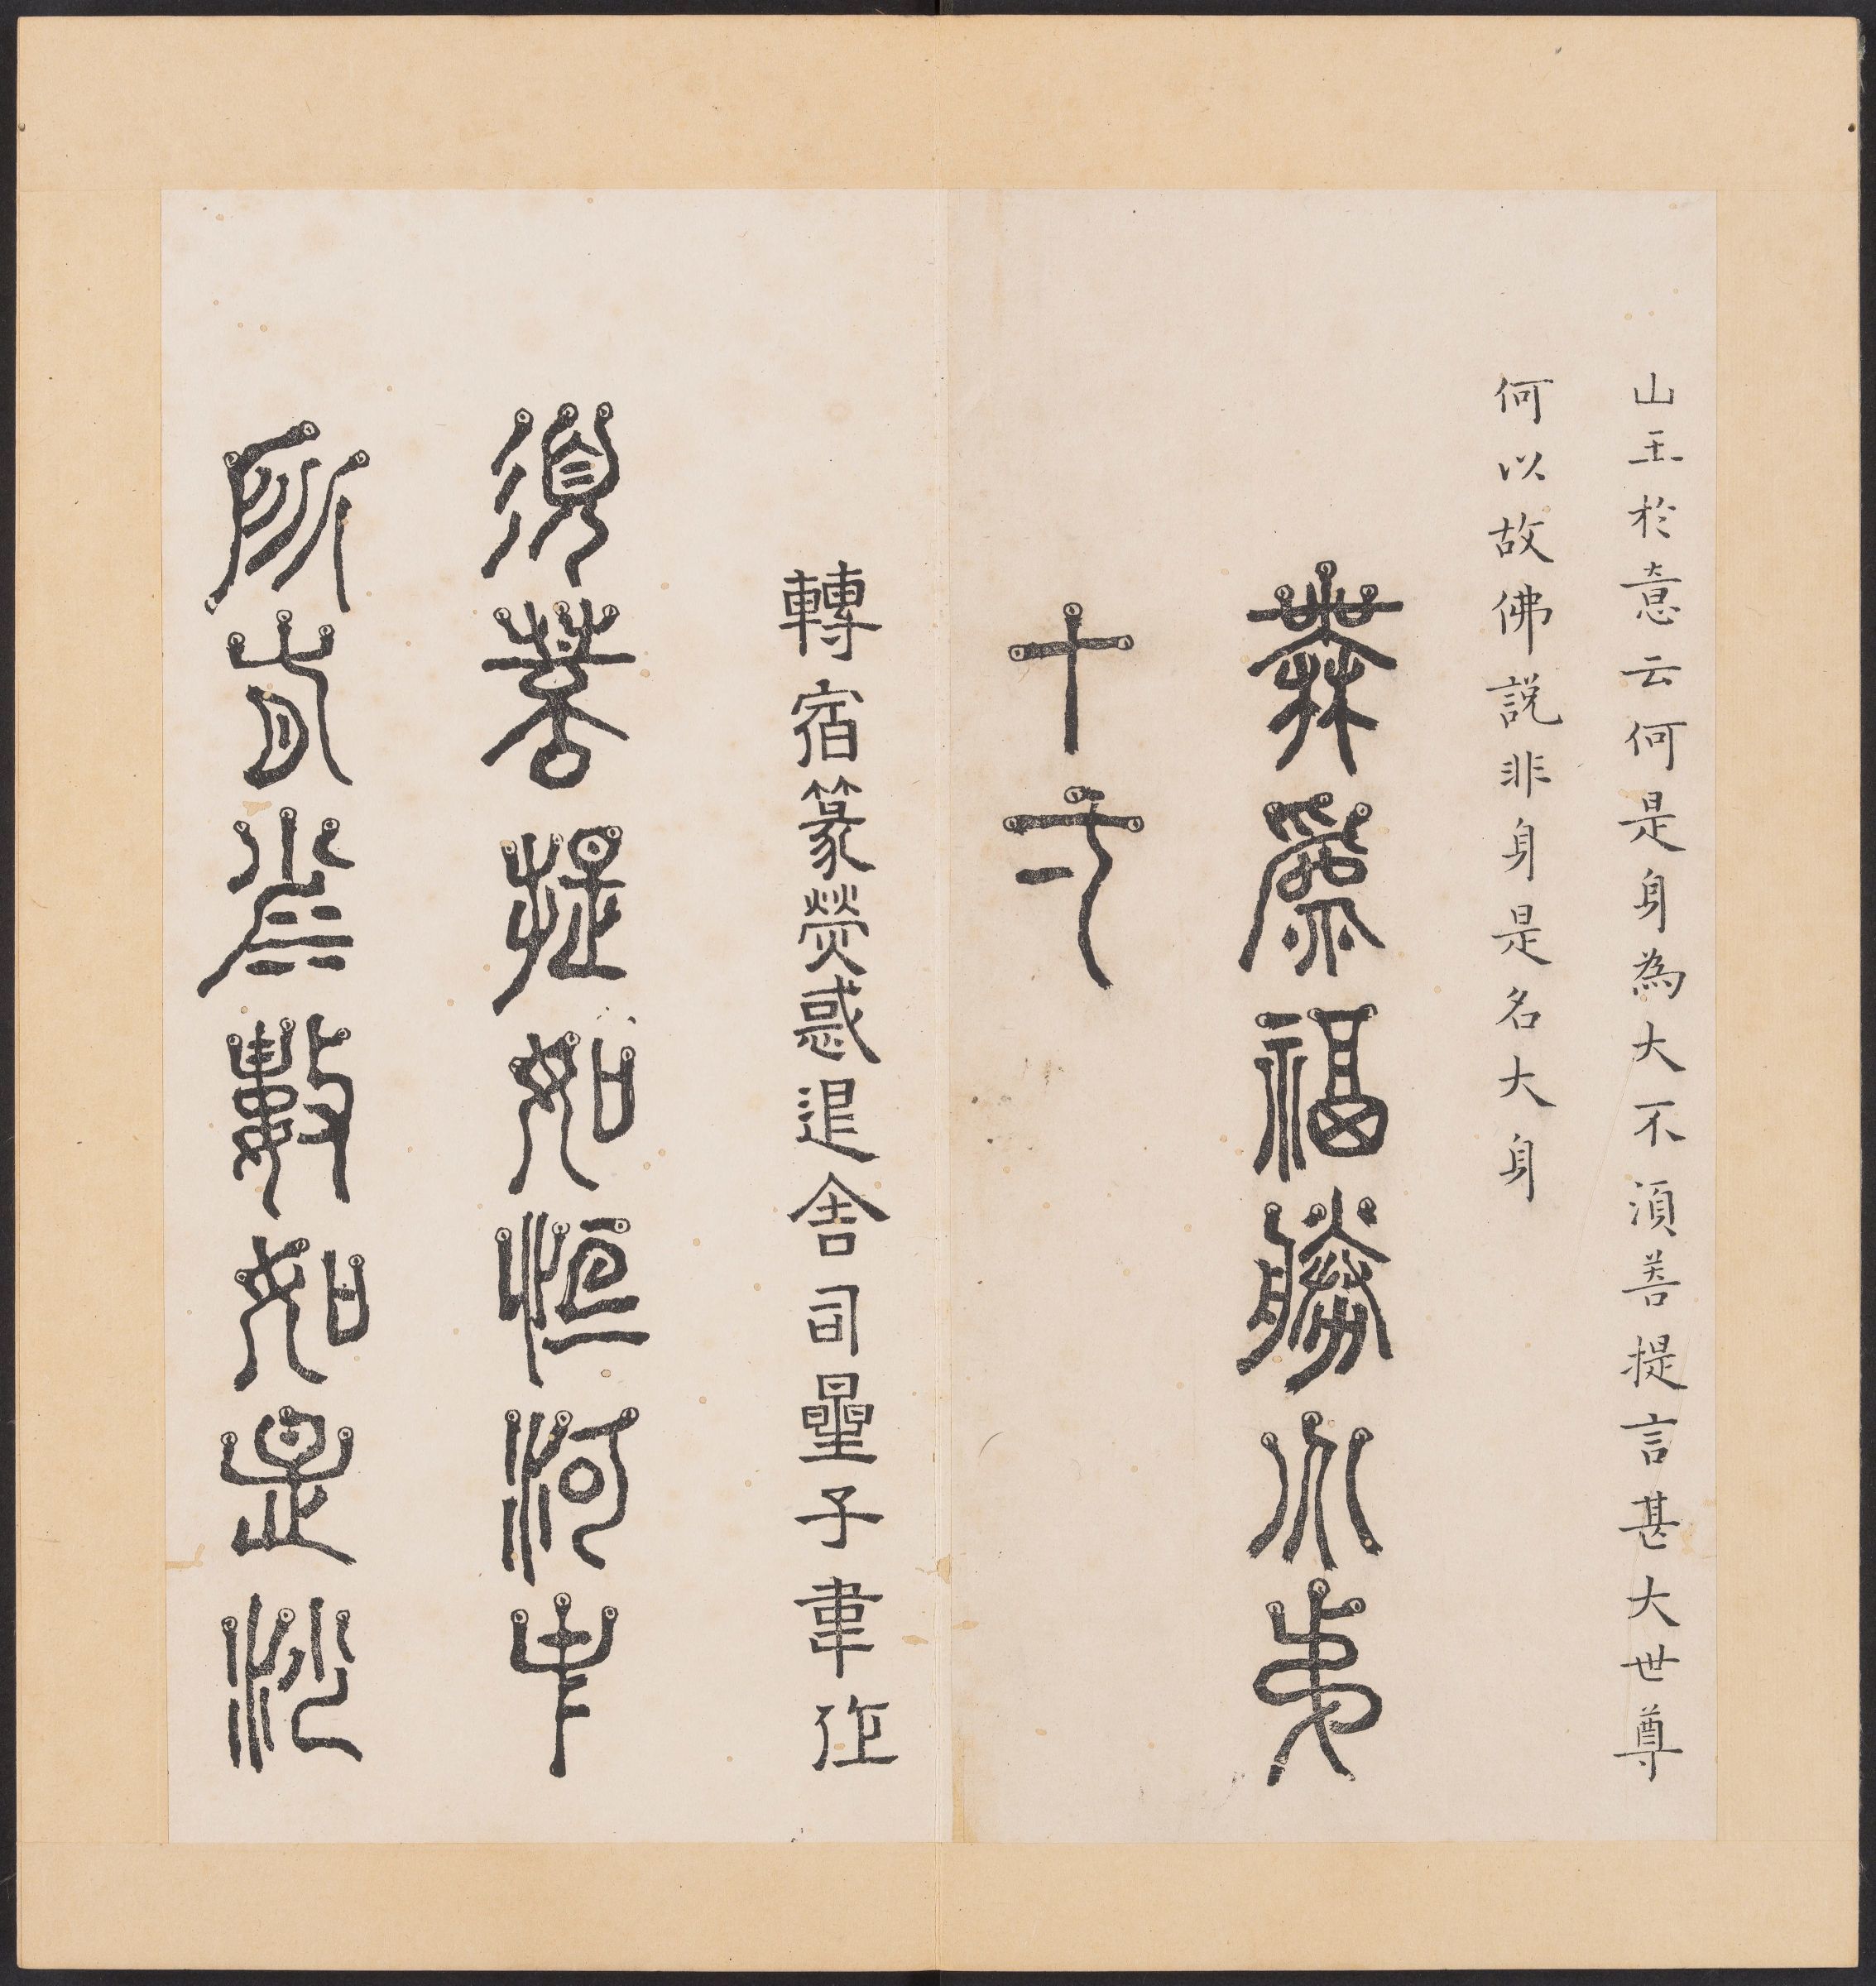 山王於意云何是身為大不須菩提言甚大世尊
何以故佛説非身是名大身
無爲福勝分弟
十一
轉宿篆熒惑退舍司星子韋作
須菩提如恒河中
所有沙數如是沙